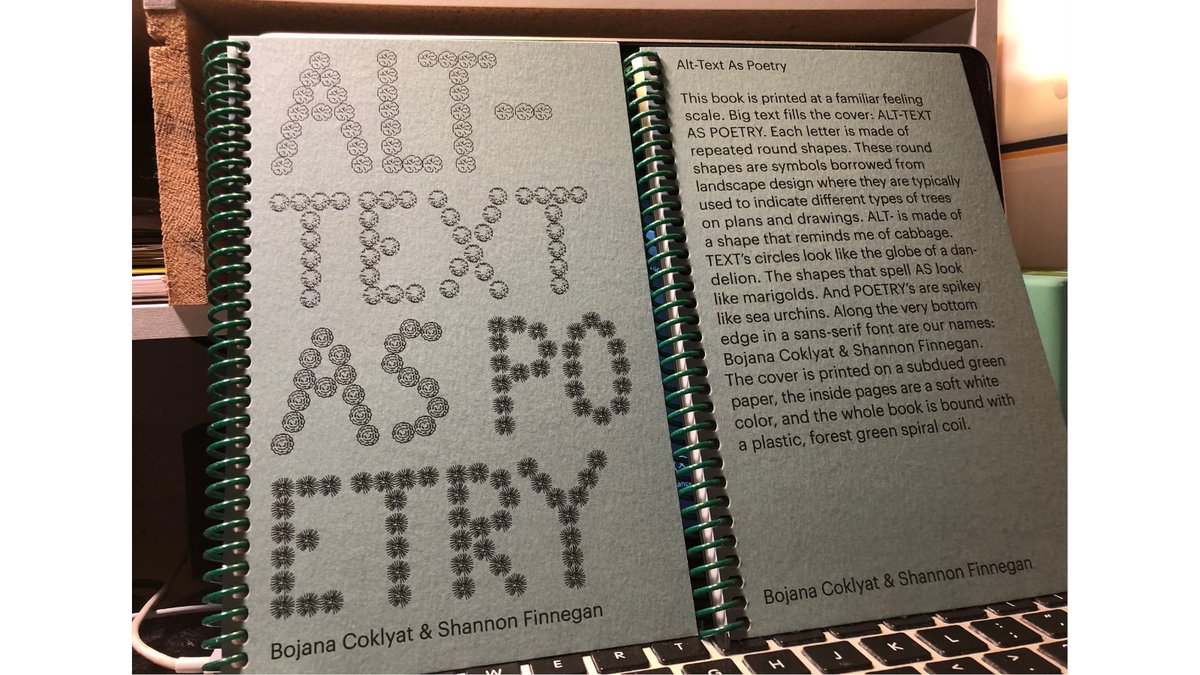 ALT-
TEXT
AS PO
ETRY
Bojana Coklyat & Shannon Finnegan
Alt-Text As Poetry
This book is printed at a familiar feeling
scale. Big text fills the cover: ALT-TEXT
AS POETRY. Each letter is made of
repeated round shapes. These round
shapes are symbols borrowed from
landscape design where they are typically
used to indicate different types of trees
on plans and drawings. ALT- is made of
a shape that reminds me of cabbage.
TEXT's circles look like the globe of a dan-
delion. The shapes that spell AS look
like marigolds. And POETRY's are spikey
like sea urchins. Along the very bottom
edge in a sans-serif font are our names:
Bojana Coklyat & Shannon Finnegan.
The cover is printed on a subdued green
paper, the inside pages are a soft white
color, and the whole book is bound with
a plastic, forest green spiral coil.
Bojana Coklyat & Shannon Finnegan
W E R T
G H J K L : ;
< >